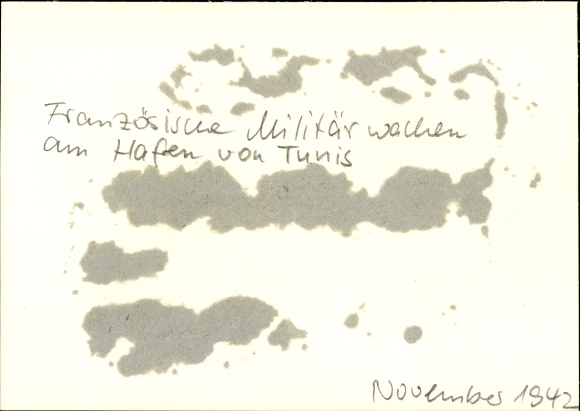 Französische Militärwachen
am Hafen von Tunis
November 1942